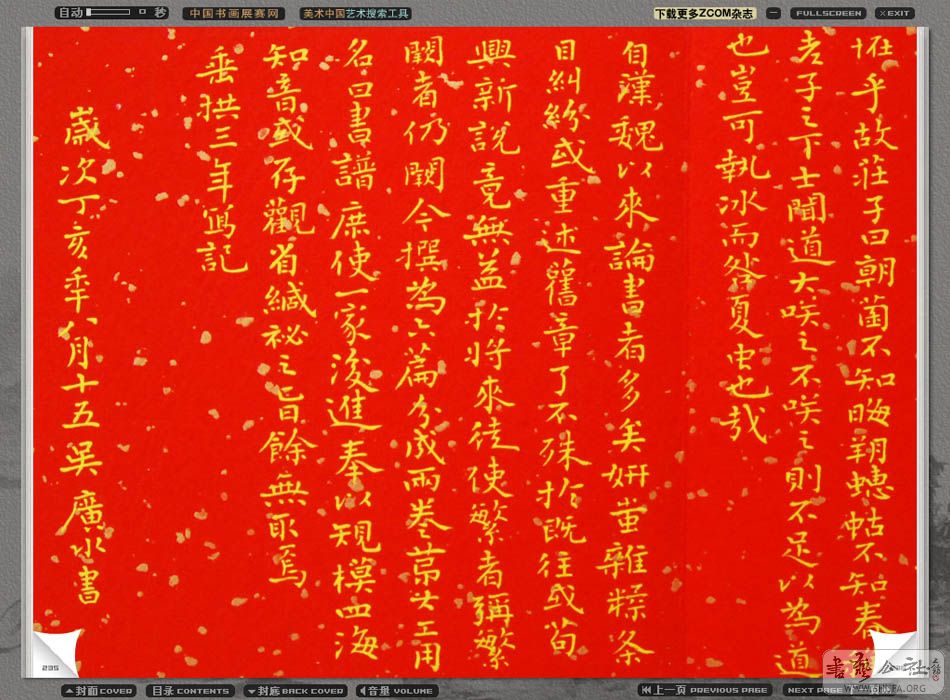 自动 秒 中国书画展赛网 美术中国艺术搜索工具 下载更多ZCOM杂志 FULLSCREEN EXIT
恠乎故莊子曰朝菌不知晦朔蟪蛄不知春
老子云下士聞道大咲之不咲之則不足以為道
也豈可執冰而咎夏虫也哉
自漢魏以來論書者多矣妍蚩雜糅条
目糾紛或重述舊章了不殊於既往或苟
興新說竟無益於將來徒使繁者彌繁
闕者仍闕今撰為六篇分成兩卷苐其工用
名曰書譜庶使一家後進奉以規模四海
知音或存觀省緘祕之旨餘無取焉
垂拱三年寫記
歲次丁亥年八月十五吳廣水書
235
封面 COVER 目录 CONTENTS 封底 BACK COVER 音量 VOLUME 上一页 PREVIOUS PAGE NEXT PAGE
公社